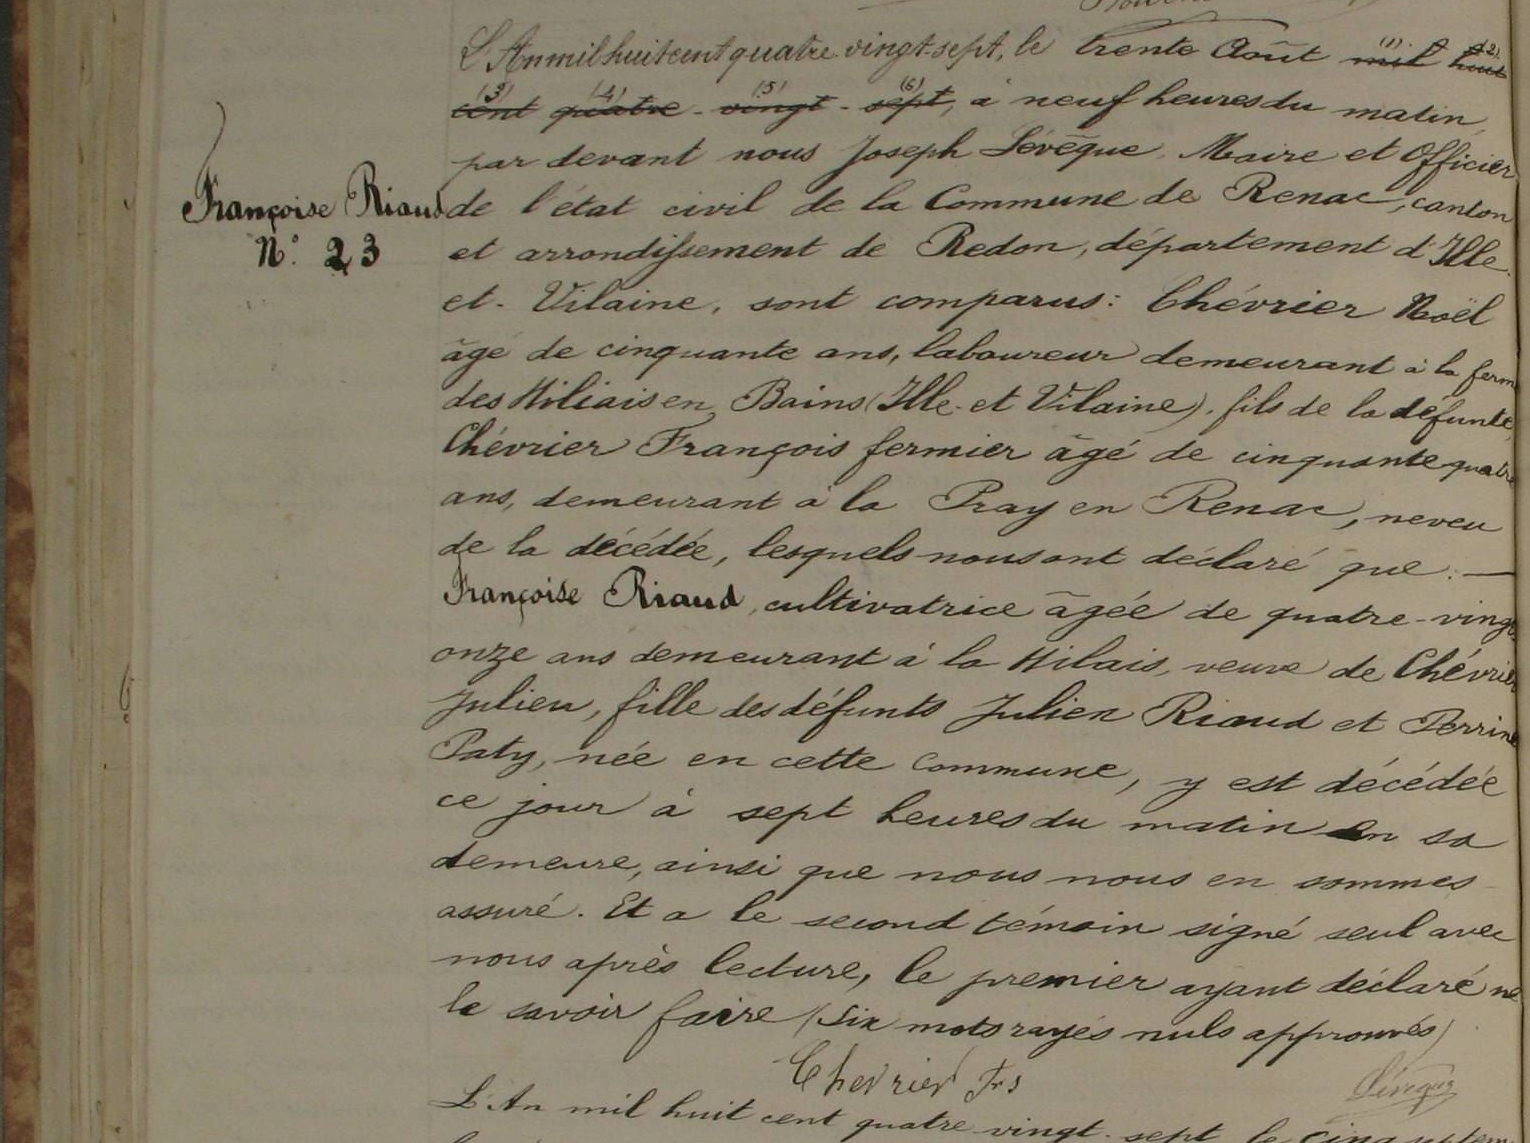 L'An mil huit cent quatre-vingt-sept, le trente Août mil huit
cent quatre-vingt-sept, à neuf heures du matin,
par devant nous Joseph Lévêque, Maire et Officier
Françoise Riaud
N° 23
de l'état civil de la Commune de Renac, canton
et arrondissement de Redon, département d'Ille-
et-Vilaine, sont comparus: Chévrier Noël
âgé de cinquante ans, laboureur demeurant à la ferm
des Hiliais en Bains (Ille-et-Vilaine), fils de la défunte,
Chévrier François fermier âgé de cinquante quatre
ans, demeurant à la Pray en Renac, neveu
de la décédée, lesquels nous ont déclaré que :—
Françoise Riaud, cultivatrice âgée de quatre-vingt
onze ans demeurant à la Hilais, veuve de Chévrier
Julien, fille des défunts Julien Riaud et Perrine
Paty, née en cette commune, y est décédée
ce jour à sept heures du matin en sa
demeure, ainsi que nous nous en sommes
assuré. Et a le second témoin signé seul avec
nous après lecture, le premier ayant déclaré ne
le savoir faire (Six mots rayés nuls approuvés)
Chevrier Frs
Lévêque
L'An mil huit cent quatre-vingt-sept le cinq